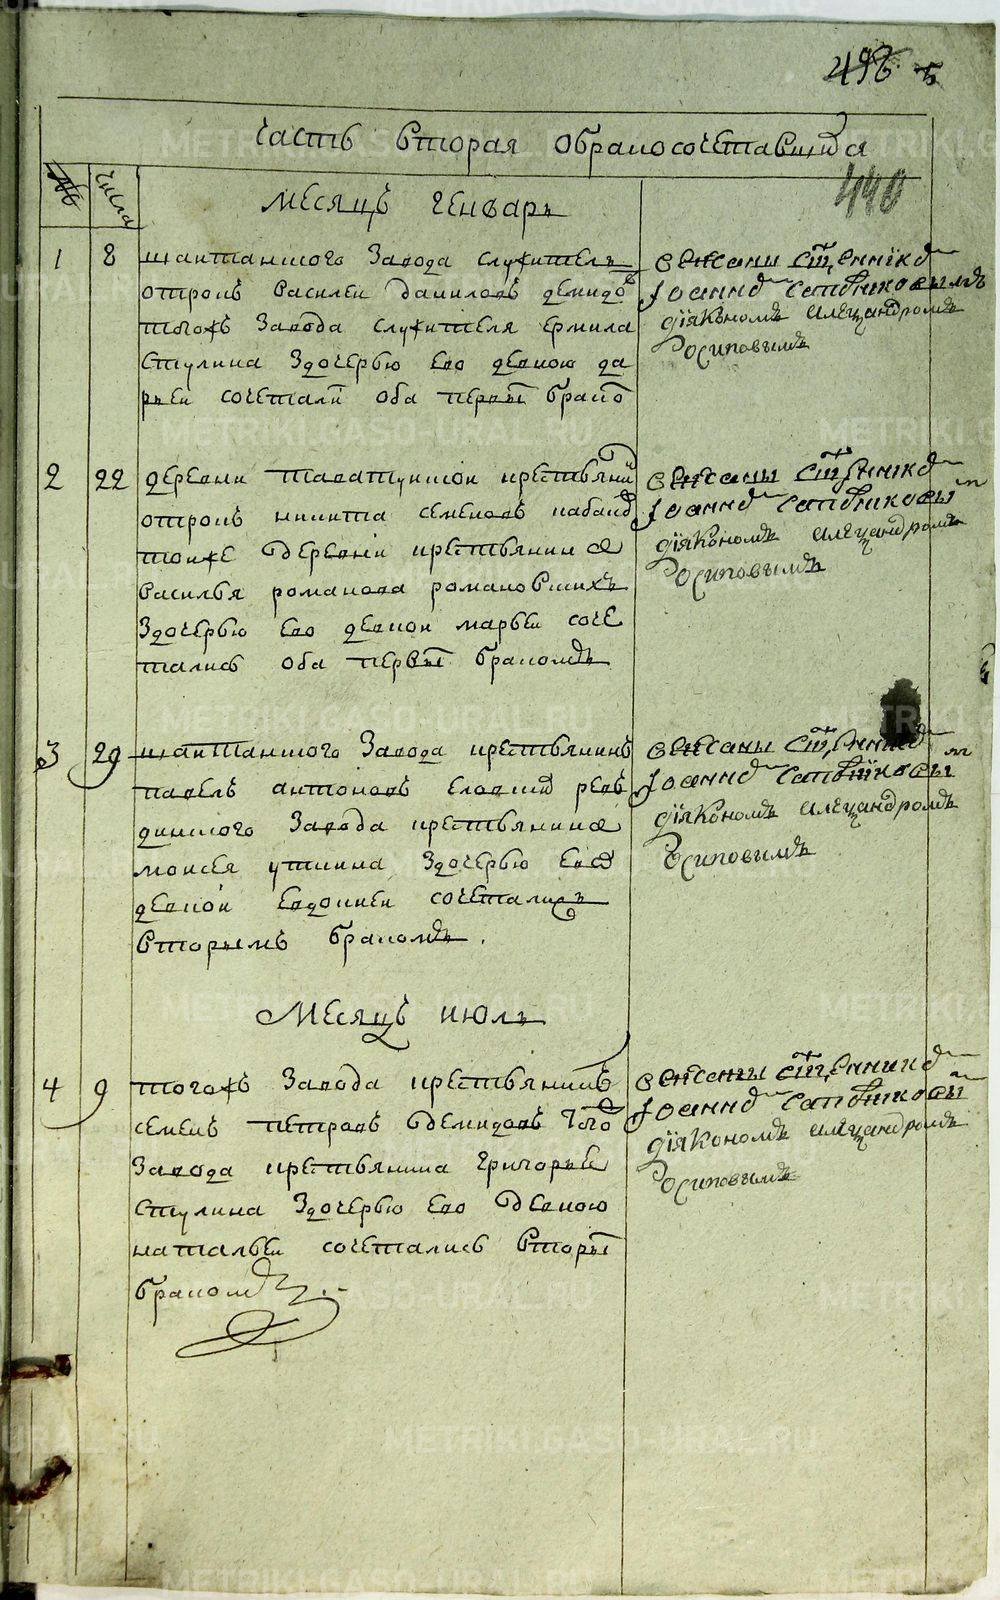 498
Часть вторая обракосочетавшихся
440
№
числа
Месяцъ генварь
1
8
шайтанского завода служитель
отрокъ василей даниловъ демидо
тогожъ завода служителя ермила
стулина здочерью ево девкою да
рьей сочетали оба первы брако
венчаны священникомъ
Иоанномъ сапожниковымъ
дїякономъ александромъ
осиповымъ
2
22
деревни таватуйской крестьяни
отрокъ никита семеновъ
тойже деревни крестьянина
василья романова романовскихъ
здочерью ево девкой марьей соче
тались оба первы бракомъ
венчаны священникомъ
Иоанномъ сапожниковы
дїякономъ александромъ
осиповымъ
3
29
шайтанского завода крестьянинъ
павелъ антоновъ ревъ
динского завода крестьянина
моисея уткина здочерью ево
девкой евдокией сочетались
вторымъ бракомъ.
венчаны священникомъ
Иоанномъ сапожниковы
дїякономъ александромъ
осиповымъ
Месяцъ июль
4
9
тогожъ завода крестьянинъ
семенъ петровъ демидовъ того
завода крестьянина григорья
стулина здочерью ево девкою
натальей сочетались вторы
бракомъ
венчаны священникомъ
Иоанномъ сапожниковы
дїякономъ александромъ
осиповымъ
METRIKI.GASO-URAL.RU